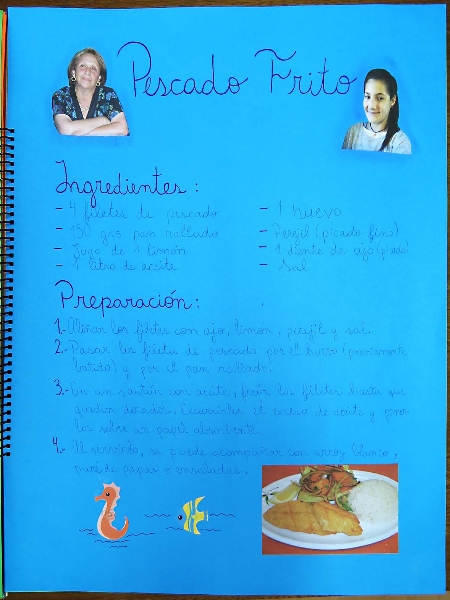 Pescado Frito
Ingredientes:
- 4 filetes de pescado
- 150 grs pan rallado
- Jugo de 1 limón
- 1 litro de aceite
- 1 huevo
- Perejil (picado fino)
- 1 diente de ajo (picado)
- Sal
Preparación:
1.- Aliñar los filetes con ajo, limon, perejil y sal.
2.- Pasar los filetes de pescado por el huevo (previamente
batido) y por el pan rallado.
3.- En un sartén con aceite, freír los filetes hasta que
queden dorados. Escurrirles el exceso de aceite y poner-
los sobre un papel absorbente.
4.- Al servirlo, se puede acompañar con arroz blanco,
puré de papas o ensaladas.